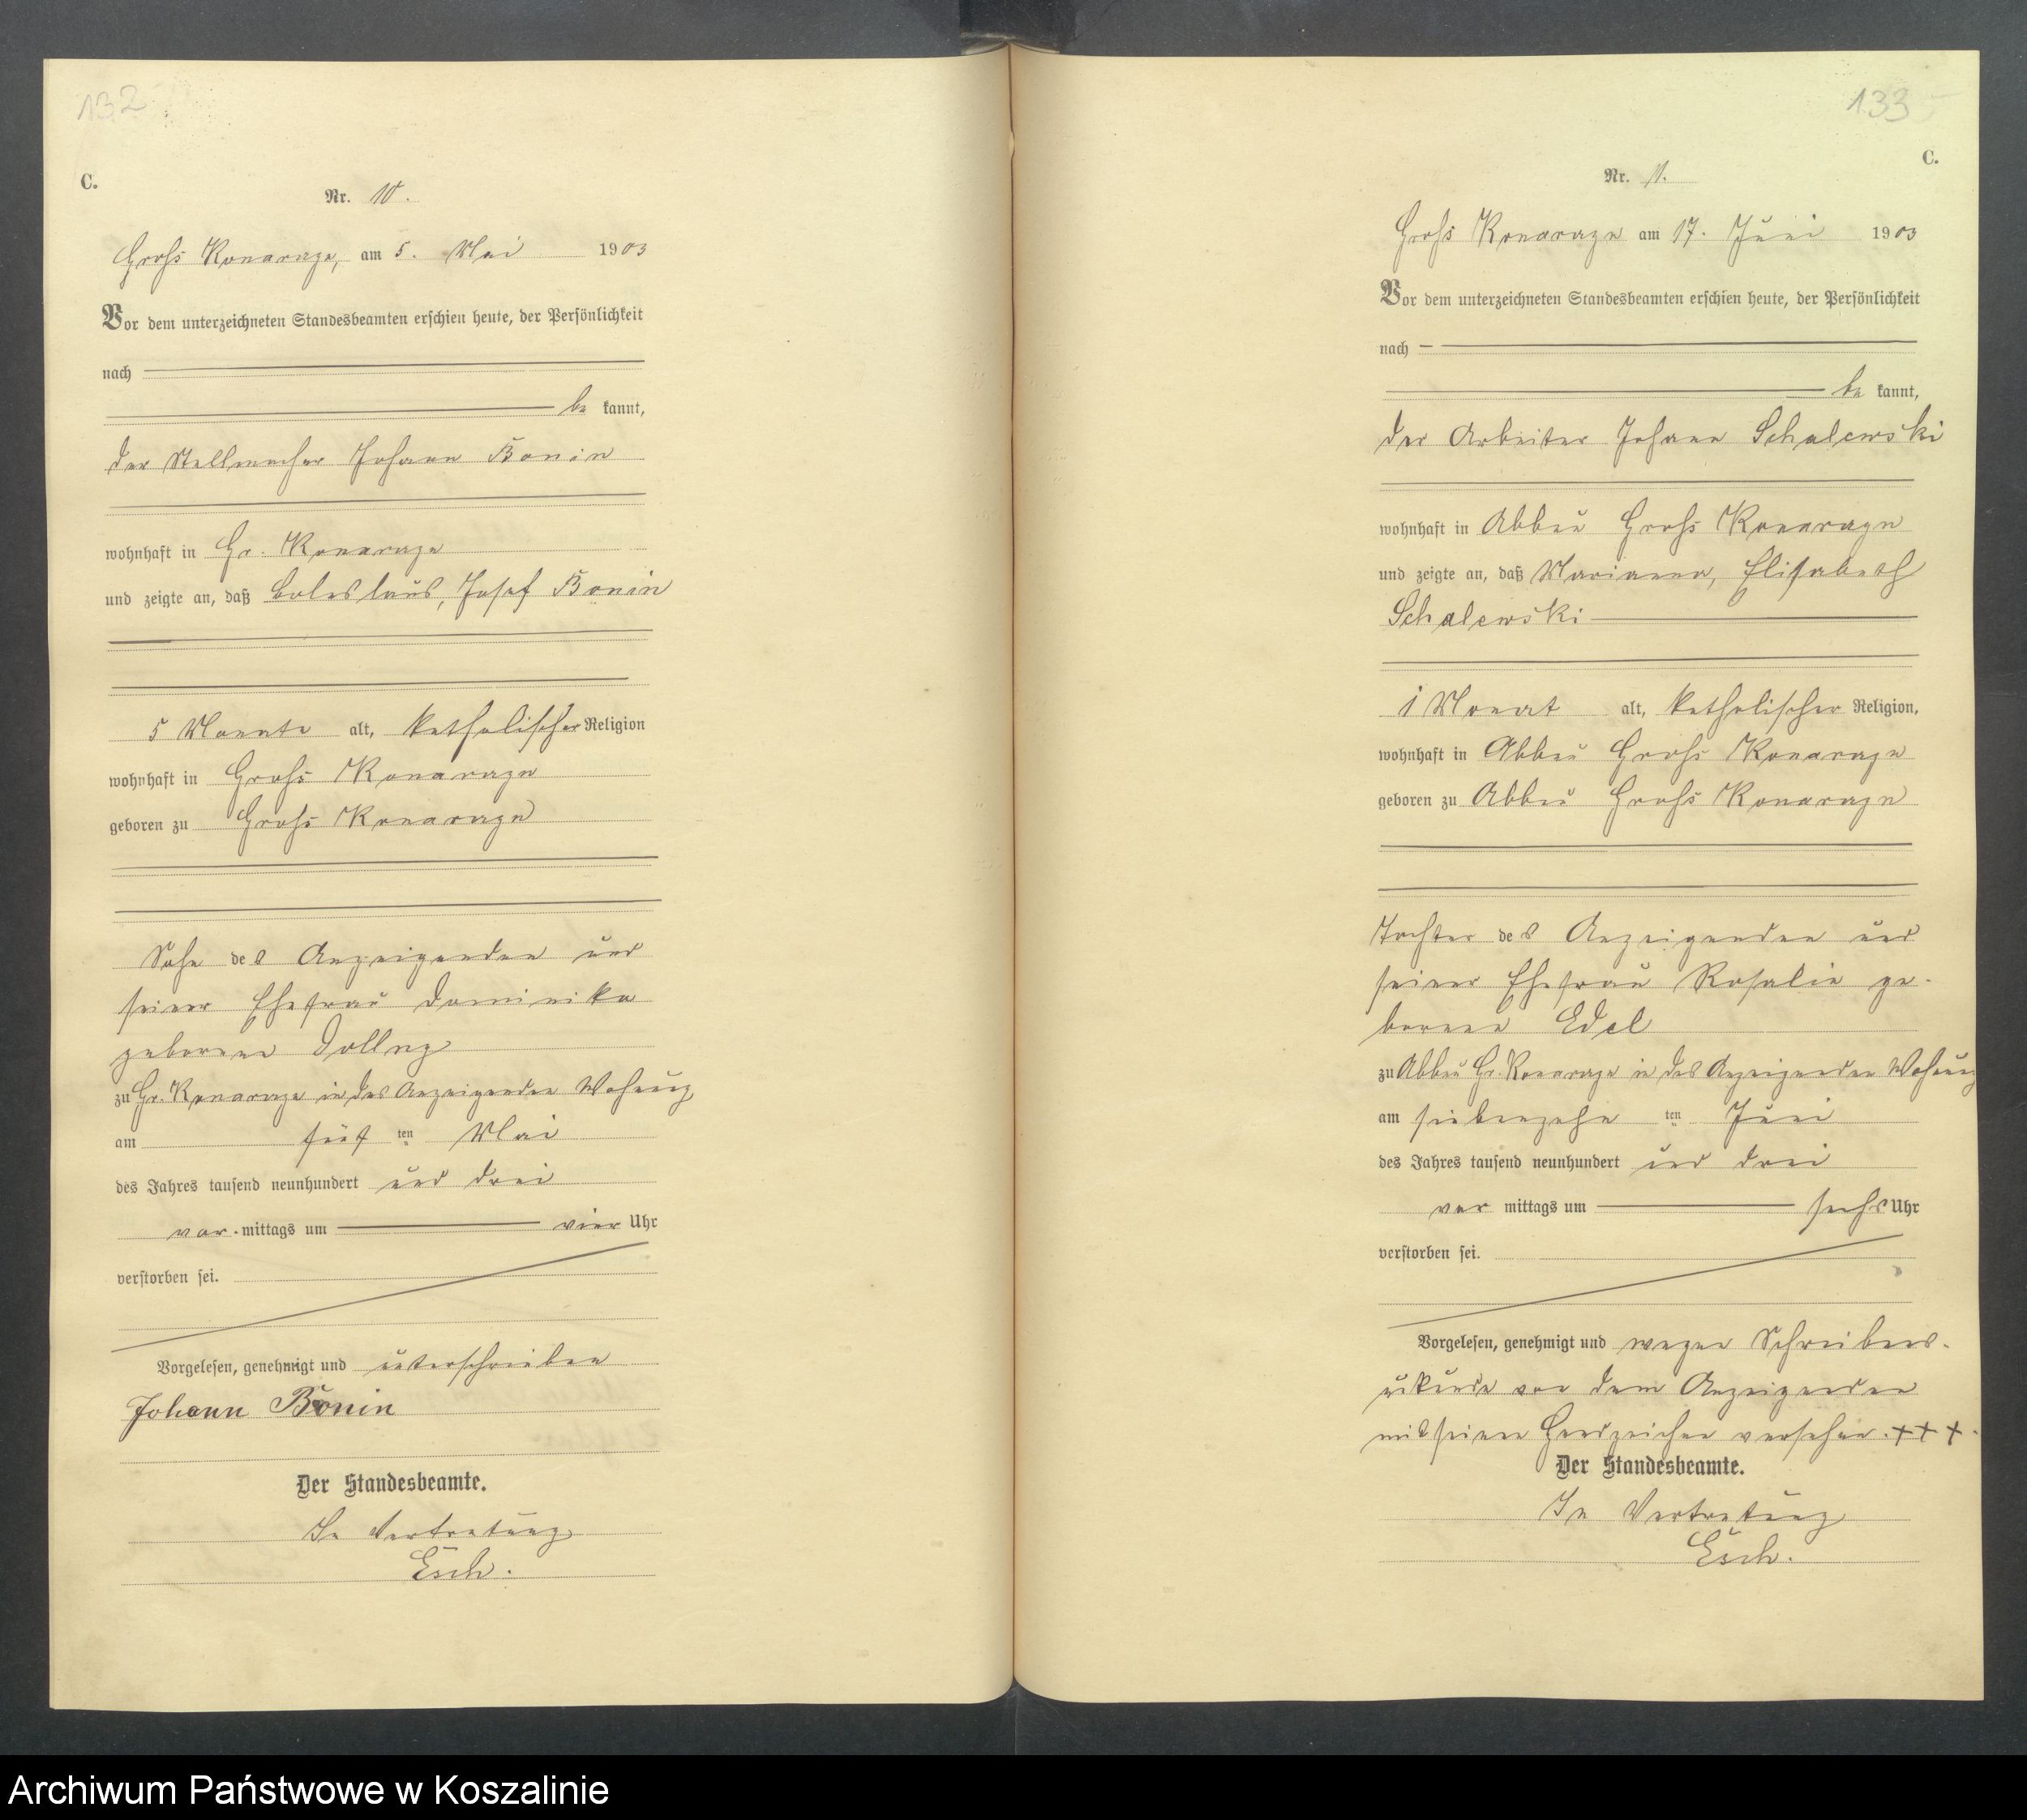 132
C.
Nr. 10.
Groß Konarzyn, am 5. Mai 1903
Vor dem unterzeichneten Standesbeamten erschien heute, der Persönlichkeit
nach
be kannt,
der Stellmacher Johann Bonin
wohnhaft in Gr. Konarzyn
und zeigte an, daß Boleslaus, Josef Bonin
5 Monate alt, katholischer Religion
wohnhaft in Groß Konarzyn
geboren zu Groß Konarzyn
Sohn des Anzeigenden und
seiner Ehefrau Dominika
geborenen
zu Gr. Konarzyn in des Anzeigenden Wohnung
am fünf ten Mai
des Jahres tausend neunhundert und drei
vor mittags um vier Uhr
verstorben sei.
Vorgelesen, genehmigt und unterschrieben
Johann Bonin
Der Standesbeamte.
In Vertretung
Esch.
133
C.
Nr. 11.
Groß Konarzyn am 17. Juni 1903
Vor dem unterzeichneten Standesbeamten erschien heute, der Persönlichkeit
nach
be kannt,
der Arbeiter Johann Schalewski
wohnhaft in Abbau Groß Konarzyn
und zeigte an, daß Marianna, Elisabeth
Schalewski
1 Monat alt, katholischer Religion,
wohnhaft in Abbau Groß Konarzyn
geboren zu Abbau Groß Konarzyn
Tochter des Anzeigenden und
seiner Ehefrau Rosalie ge-
borenen Edel
zu Abbau Gr. Konarzyn in des Anzeigenden Wohnung
am siebenzehn ten Juni
des Jahres tausend neunhundert und drei
vor mittags um sechs Uhr
verstorben sei.
Vorgelesen, genehmigt und wegen Schreibens-
unkunde von dem Anzeigenden
mit seinem Handzeichen versehen. +++.
Der Standesbeamte.
In Vertretung
Esch.
Archiwum Państwowe w Koszalinie